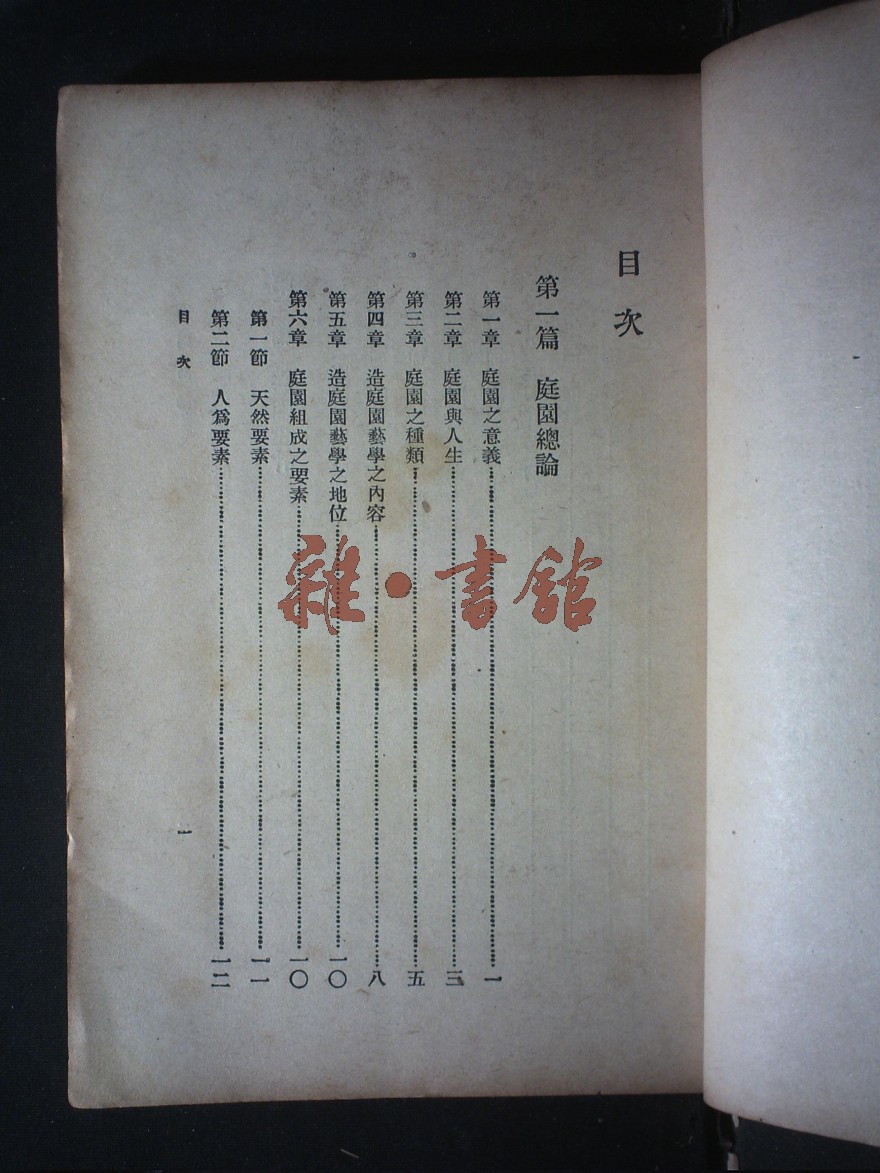 目次
第一篇 庭園總論
第一章 庭園之意義……一
第二章 庭園與人生……三
第三章 庭園之種類……五
第四章 造庭園藝學之內容……八
第五章 造庭園藝學之地位……一〇
第六章 庭園組成之要素……一〇
第一節 天然要素……一一
第二節 人爲要素……一二
目次 一
雜·書館